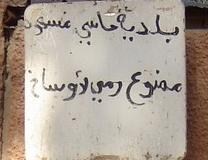 بلدية حاسي مسعود
ممنوع رمي لأوساخ